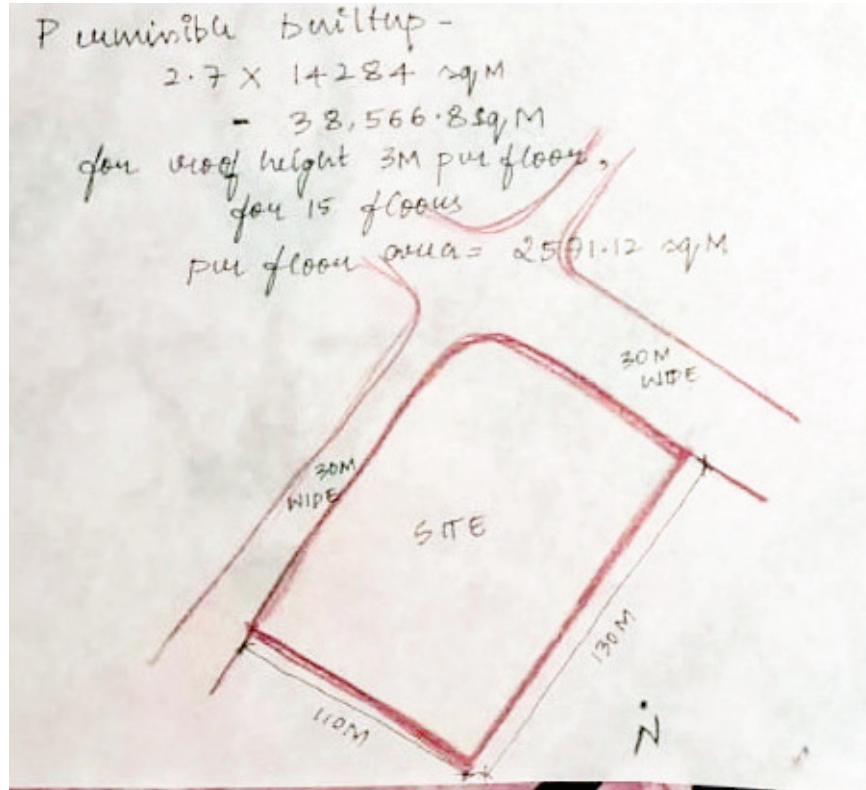 Permissible builtup -
2.7 X 14284 sqM
- 38,566.8 sqM
for roof height 3M per floor,
for 15 floors
per floor area = 2571.12 sqM
30M
WIDE
30M
WIDE
SITE
130M
110M
N